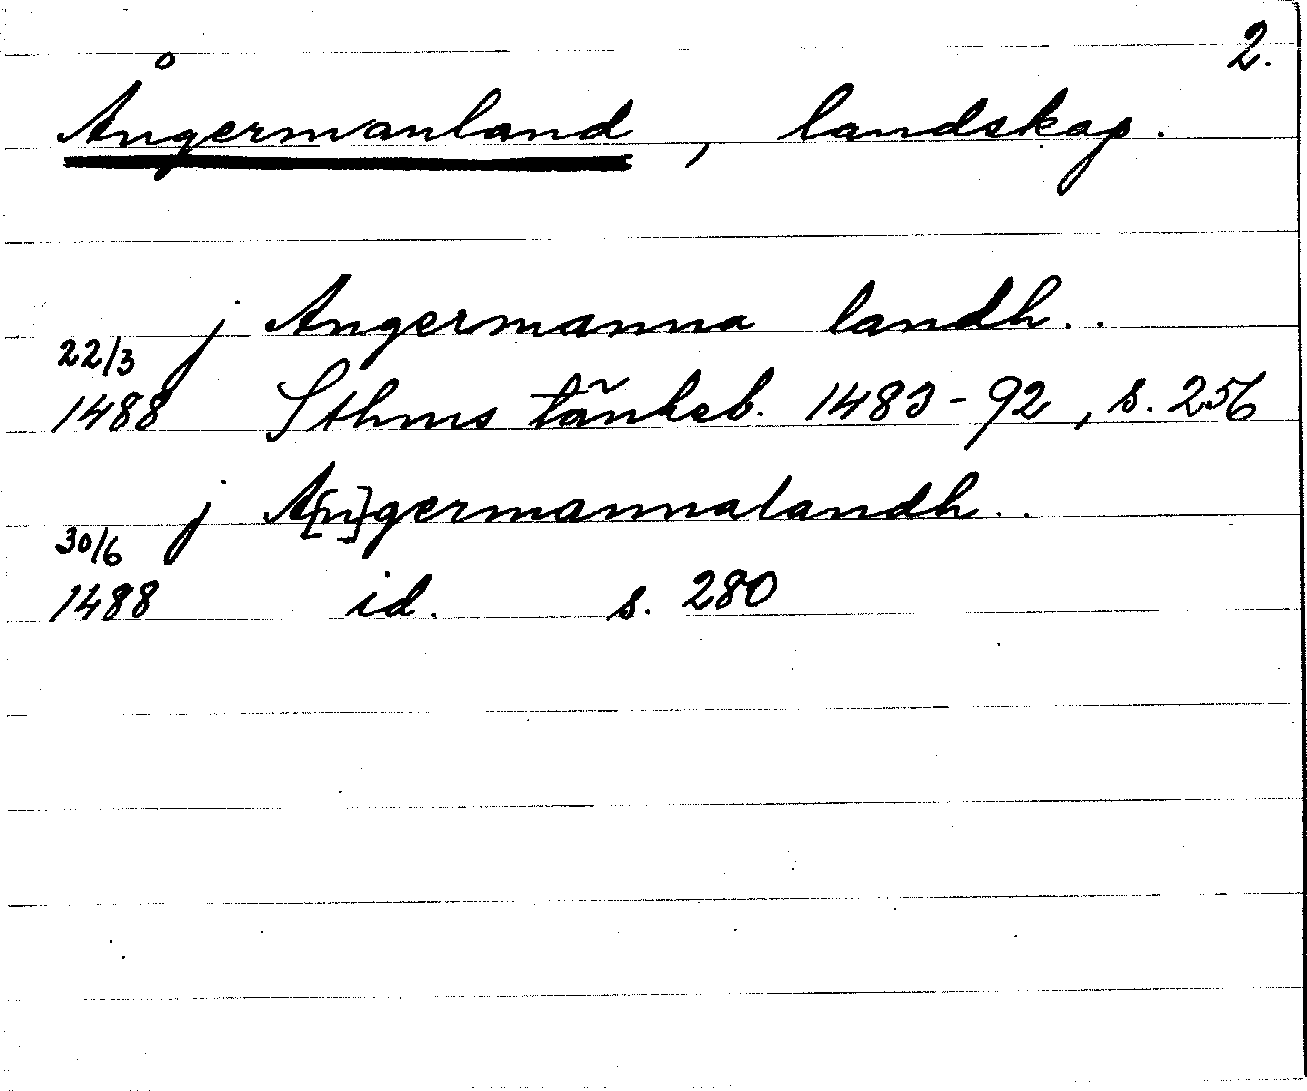 2.
Ångermanland, landskap.
j Angermanna landh..
22/3
1488 Sthms tänkeb. 1483-92, s. 256
j A[n]germannalandh..
30/6
1488 id. s. 280